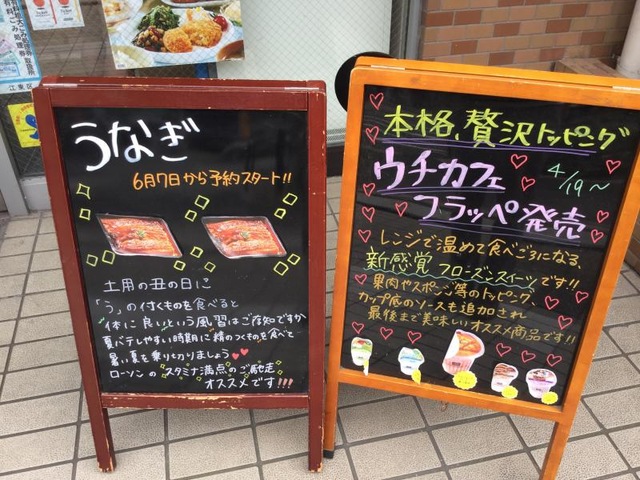 うなぎ
6月7日から予約スタート!!
土用の丑の日に
「う」の付くものを食べると
体に良いという風習はご存知ですか
夏バテしやすい時期に精のつくものを食べて
暑い夏を乗り切りましょう♥♥
ローソンのスタミナ満点のご馳走
オススメです!!!
本格、贅沢トッピング
ウチカフェ
4/19～
フラッペ発売
レンジで温めて食べごろになる、
新感覚フローズンスイーツです!!
果肉やスポンジ等のトッピング、
カップ底のソースも追加され
最後まで美味しいオススメ商品です!!
有料ごみ処理券
江東区